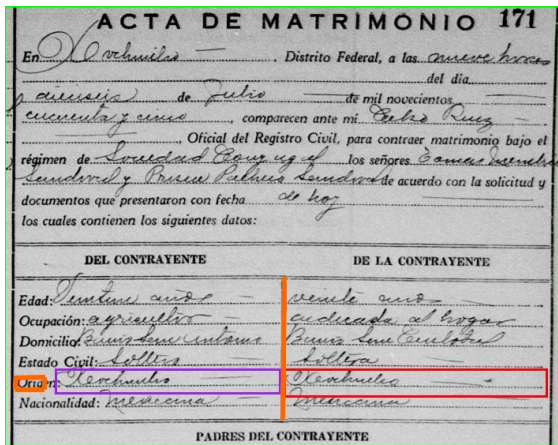 ACTA DE MATRIMONIO 171
En Xochimilco . Distrito Federal, a las nueve horas
del día
dieciseis de Julio de mil novecientos
cincuenta y cinco , comparecen ante mí Ruiz
Oficial del Registro Civil, para contraer matrimonio bajo el
régimen de Sociedad Conyugal los señores Tomas
Sandoval y Sandoval de acuerdo con la solicitud y
documentos que presentaron con fecha de hoy
los cuales contienen los siguientes datos:
DEL CONTRAYENTE DE LA CONTRAYENTE
Edad: años veinte años
Ocupación: agricultor dedicada al hogar
Domicilio: Barrio San Antonio Barrio San
Estado Civil: Soltero Soltera
Origen: Xochimilco Xochimilco
Nacionalidad: Mexicana Mexicana
PADRES DEL CONTRAYENTE